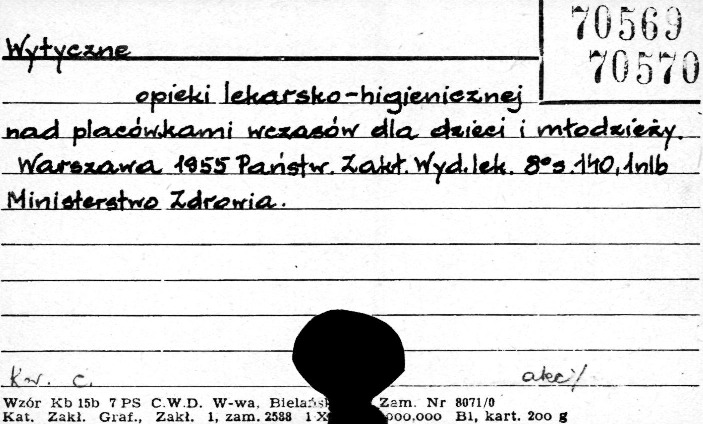 70569
70570
Wytyczne
opieki lekarsko-higienicznej
nad placówkami wczasów dla dzieci i młodzieży.
Warszawa 1955 Państw. Zakł. Wyd. lek. 8° s. 140, 1nlb
Ministerstwo Zdrowia.
Kw. C.
Wzór Kb 15b 7 PS C.W.D. W-wa, Zam. Nr 8071/0
Kat. Zakł. Graf., Zakł. 1, zam. 2588 1 X 000,000 B1, kart. 200 g